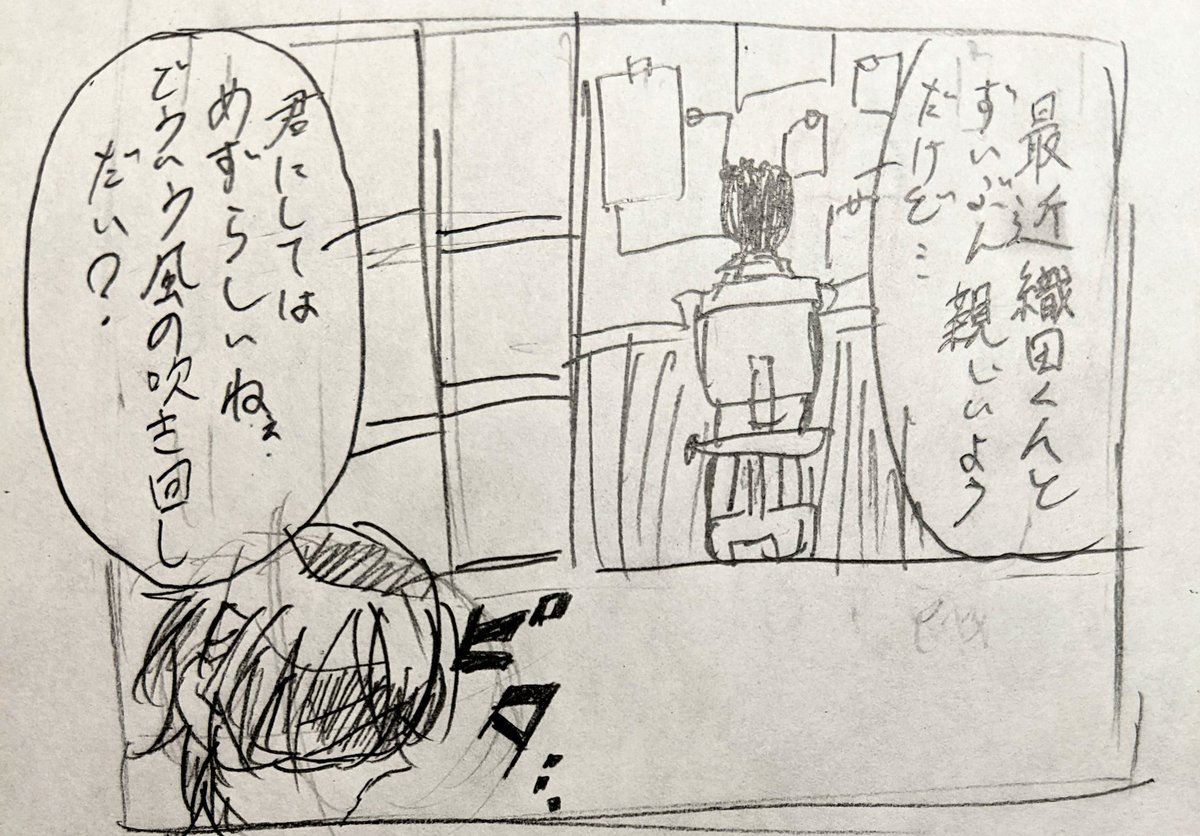 最近織田くんと
ずいぶん親しいよう
だけど…
君にしては
めずらしいねぇ。
どういう風の吹き回し
だい?
ピタ…